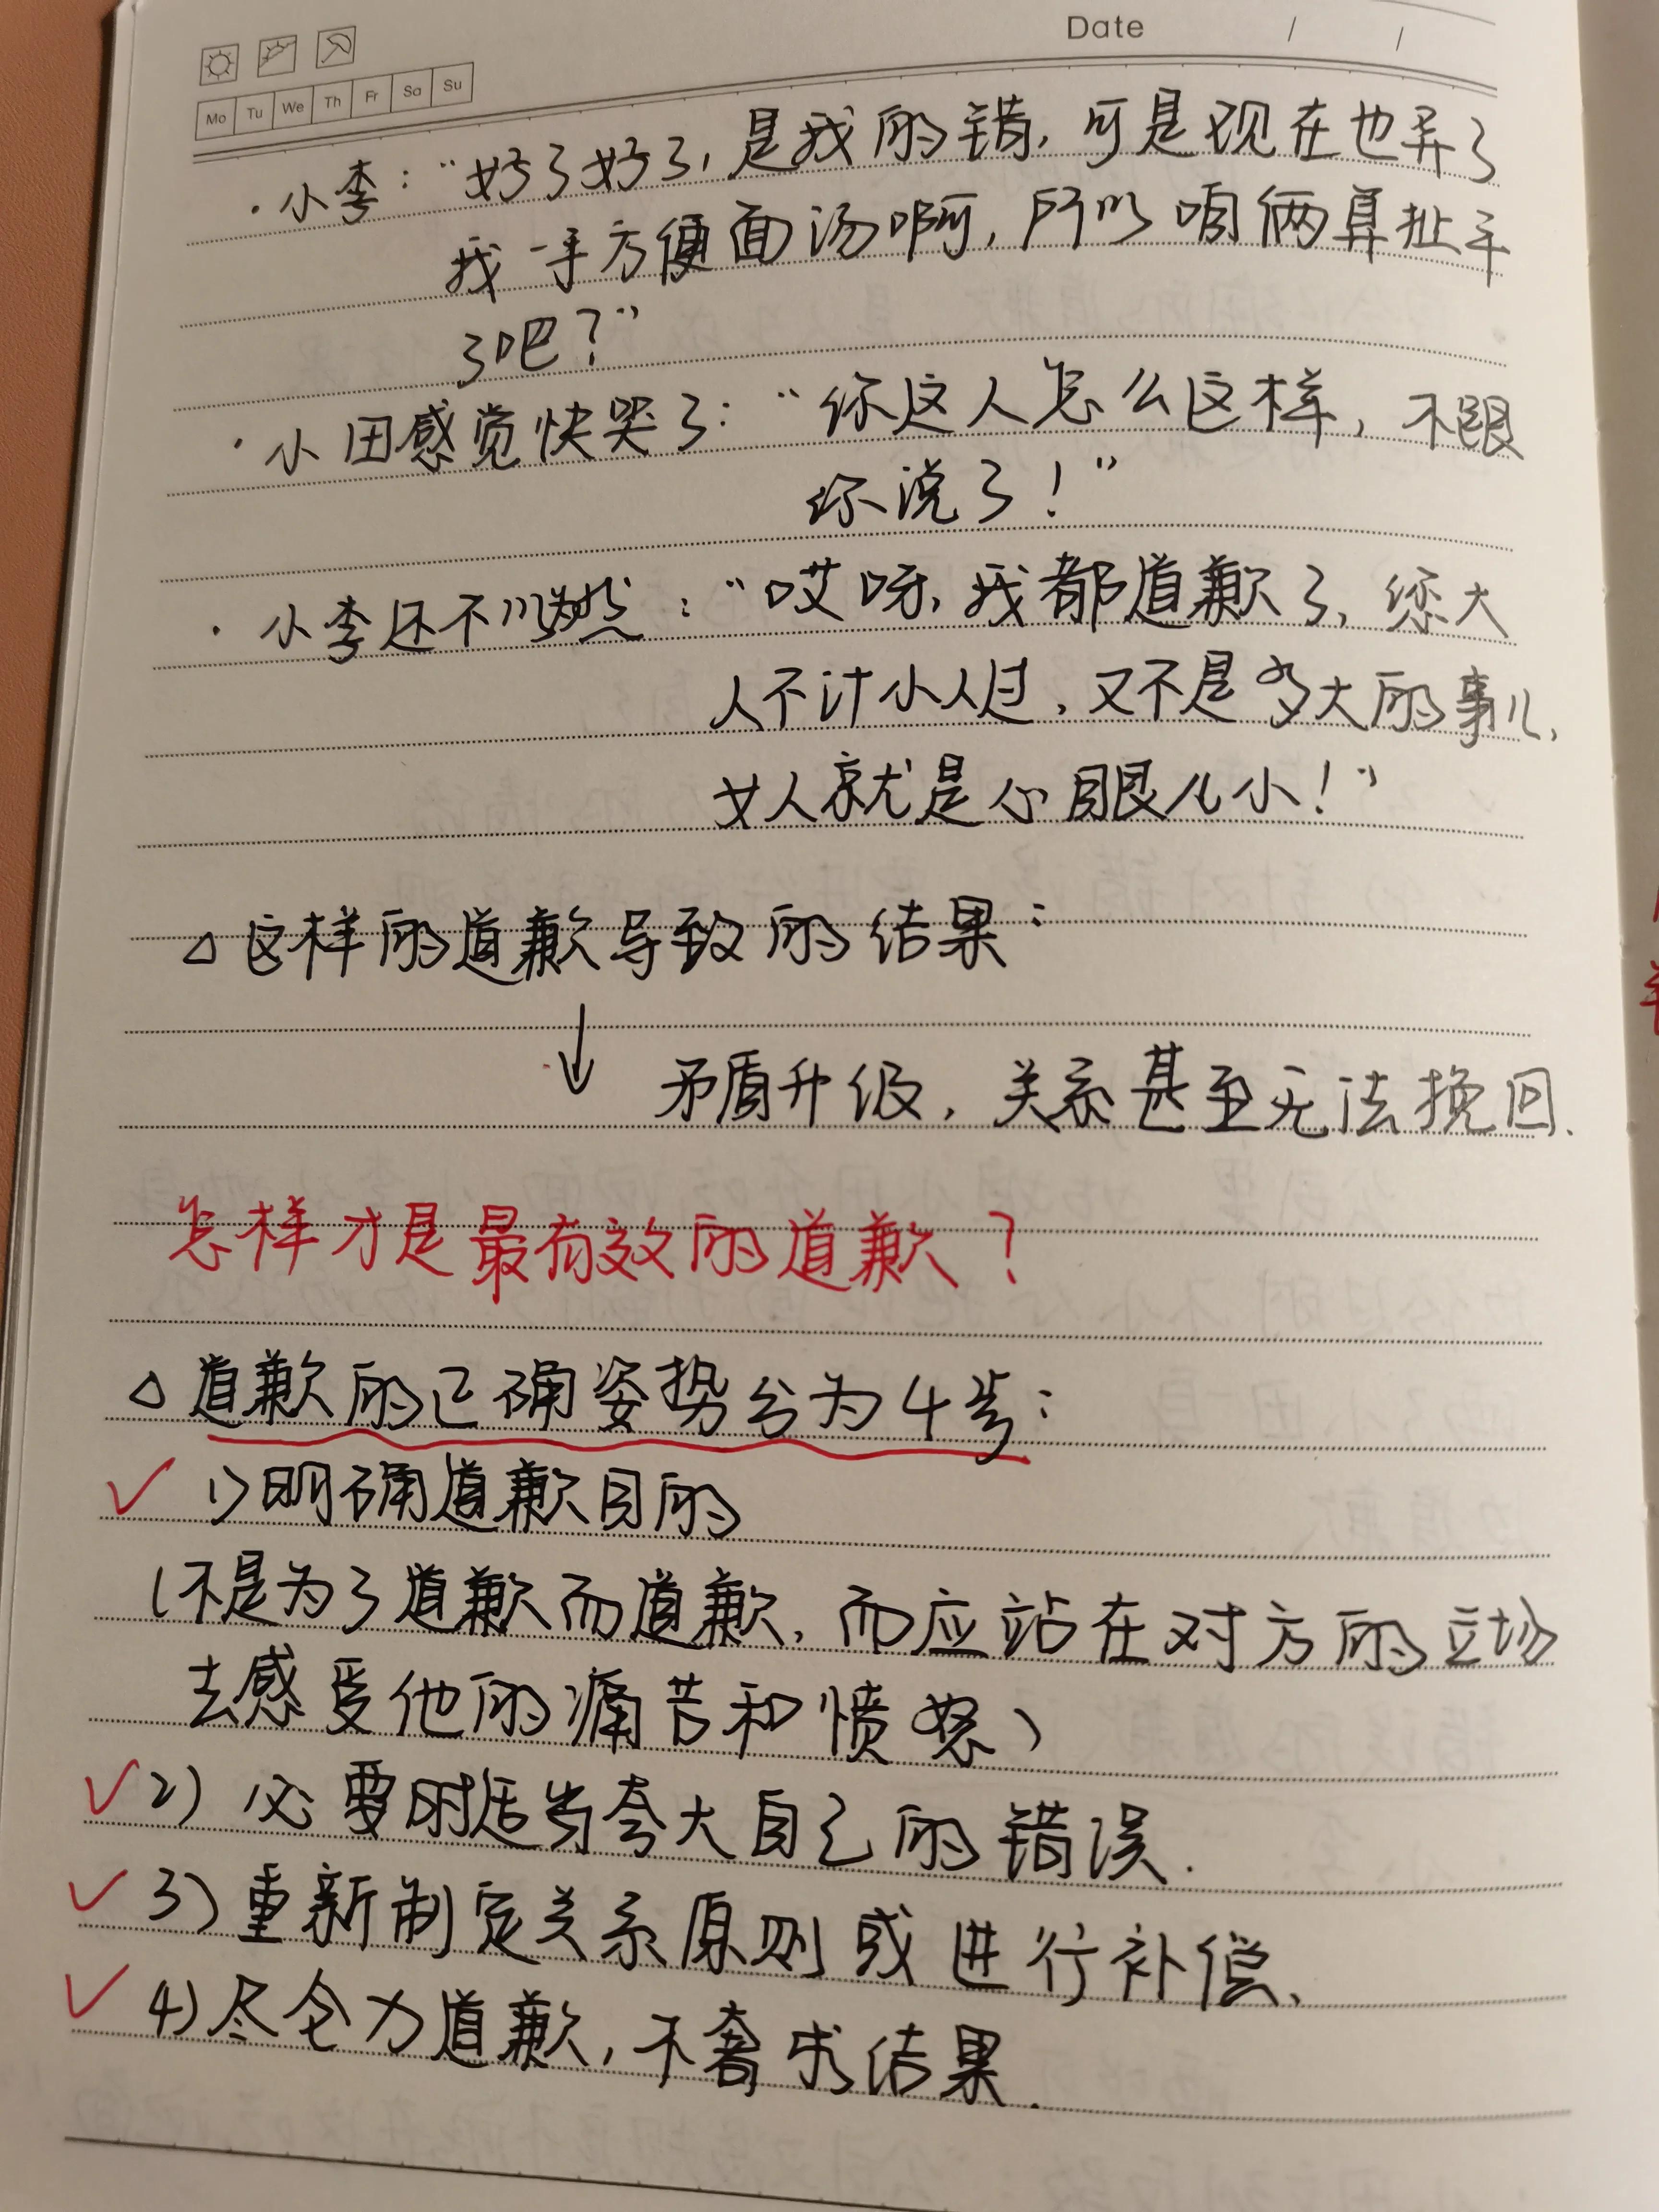 Date / /
Mo Tu We Th Fr Sa Su
·小李：“好了好了，是我的错，可是现在也弄了
我一手方便面汤啊，所以咱俩算扯平
了吧？”
·小田感觉快哭了：“你这人怎么这样，不跟
你说了！”
·小李还不以为然：“哎呀，我都道歉了，您大
人不计小人过，又不是多大的事儿，
女人就是心眼儿小！”
△这样的道歉导致的结果：
↓
矛盾升级，关系甚至无法挽回.
怎样才是最有效的道歉？
△道歉的正确姿势分为4步：
✓ 1)明确道歉目的
(不是为了道歉而道歉，而应站在对方的立场
去感受他的痛苦和愤怒)
✓2) 必要时适当夸大自己的错误.
✓3)重新制定关系原则或进行补偿、
✓4)尽全力道歉，不奢求结果.